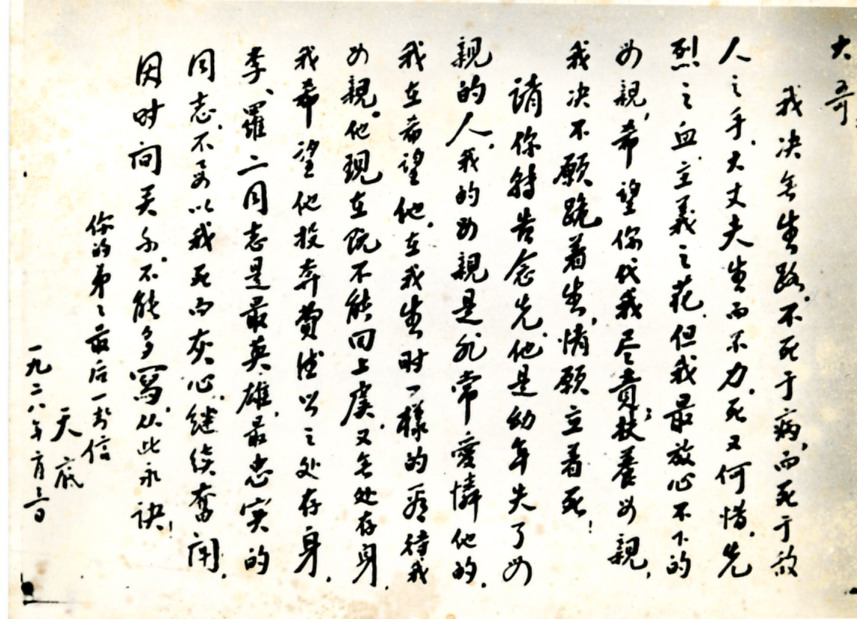 大哥:
我决无生路,不死于病,而死于敌
人之手,大丈夫生而不力,死又何惜,先
烈之血,主义之花,但我最放心不下的
母亲,希望你代我尽责,扶养母亲,
我决不愿跪着生,情愿立着死!
请你转告念先,他是幼年失了母
親的人,我的母親是非常愛憐他的,
我在希望他,在我生时一樣的看待我
母親。他现在既不能回上虞,又无处存身,
我希望他投奔贯法以之处存身,
李、羅二同志是最英雄,最忠实的
同志,不要以我死而灰心,继续奋闘,
因时间关系,不能多寫,从此永诀!
你的弟之最后一封信
天底
一九二八年 月 日